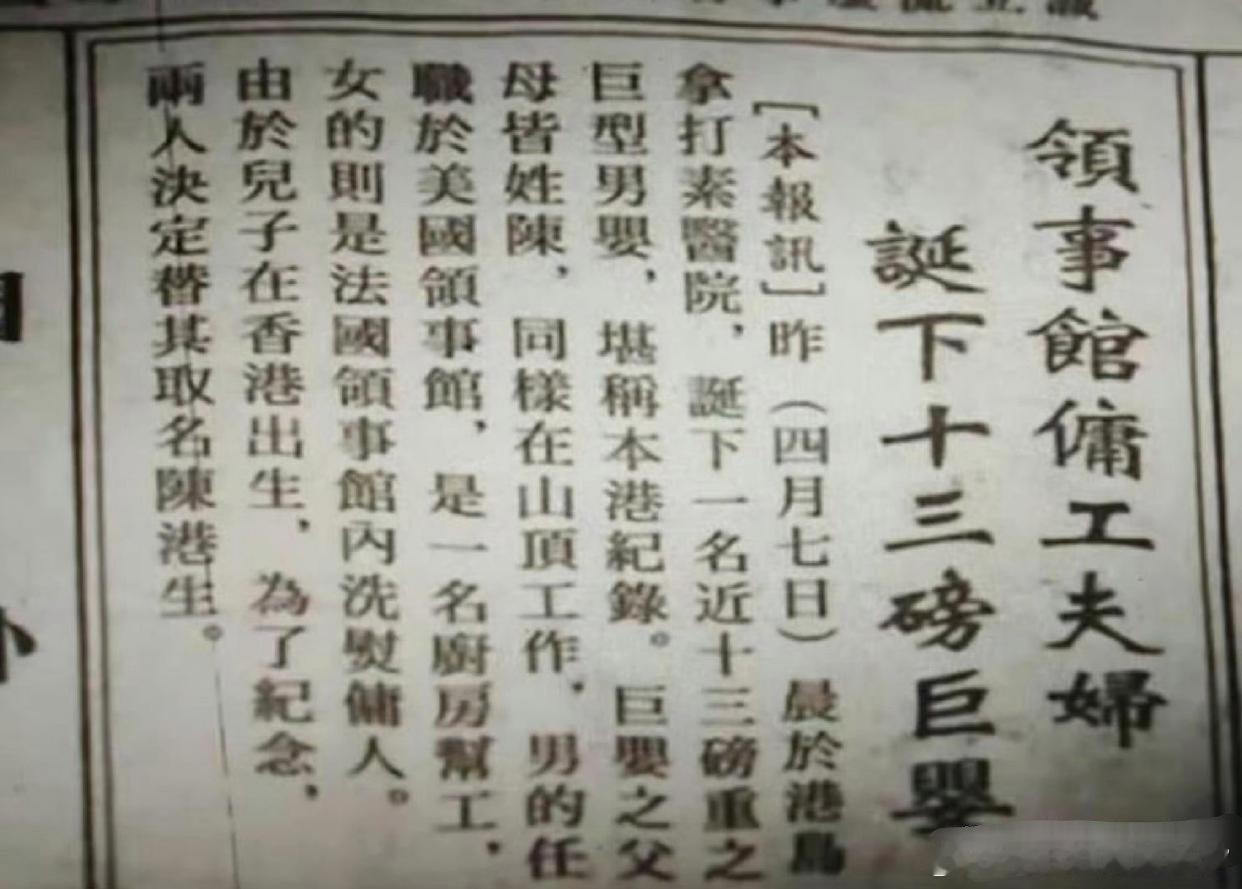 領事館傭工夫婦
誕下十三磅巨嬰
[本報訊]昨（四月七日）晨於港島
拿打素醫院，誕下一名近十三磅重之
巨型男嬰，堪稱本港紀錄。巨嬰之父
母皆姓陳，同樣在山頂工作，男的任
職於美國領事館，是一名廚房幫工，
女的則是法國領事館內洗熨傭人。
由於兒子在香港出生，為了紀念，
兩人決定替其取名陳港生。